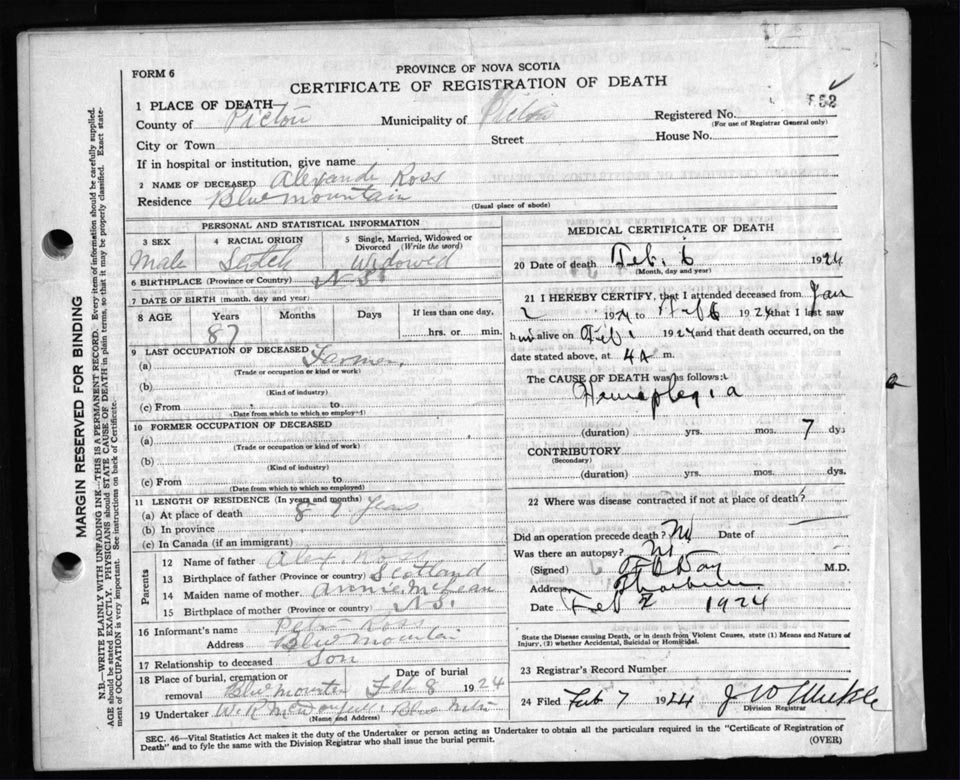 PROVINCE OF NOVA SCOTIA
FORM 6
CERTIFICATE OF REGISTRATION OF DEATH
1 PLACE OF DEATH—
County of Pictou Municipality of Pictou Registered No. 552
(For use of Registrar General only)
City or Town Street House No.
If in hospital or institution, give name
2 NAME OF DECEASED Alexande Ross
Residence Blue mountain
(Usual place of abode)
PERSONAL AND STATISTICAL INFORMATION
3 SEX 4 RACIAL ORIGIN 5 Single, Married, Widowed or Divorced (Write the word)
Male Scotch Widowed
6 BIRTHPLACE (Province or Country) N. S.
7 DATE OF BIRTH (month, day and year)
8 AGE Years Months Days If less than one day,
87 hrs. or min.
9 LAST OCCUPATION OF DECEASED
(a) Farmer
(Trade or occupation or kind or work)
(b)
(Kind of industry)
(c) From to
(Date from which to which so employed)
10 FORMER OCCUPATION OF DECEASED
(a)
(Trade or occupation or kind or work)
(b)
(Kind of industry)
(c) From to
(Date from which to which so employed)
11 LENGTH OF RESIDENCE (In years and months)
(a) At place of death 87 Years
(b) In province
(c) In Canada (if an immigrant)
Parents
12 Name of father Alex. Ross
13 Birthplace of father (Province or country) Scotland
14 Maiden name of mother Annie McLean
15 Birthplace of mother (Province or country) N S.
16 Informant's name Peter Ross
Address Blue Mountain
17 Relationship to deceased Son
18 Place of burial, cremation or removal Date of burial
Blue Mountain Feb 8 1924
19 Undertaker W. R. Blue Mtn
(Name and Address)
MEDICAL CERTIFICATE OF DEATH
20 Date of death Feb. 6 1924
(Month, day and year)
21 I HEREBY CERTIFY, that I attended deceased from Jan
2 1924 to Feb 6 1924 that I last saw
him alive on Feb 1 1924 and that death occurred, on the
date stated above, at 4 A m.
The CAUSE OF DEATH was as follows:
Hemiplegia
(duration) yrs. mos. 7 dys
CONTRIBUTORY
(Secondary)
(duration) yrs. mos. dys.
22 Where was disease contracted if not at place of death?
Did an operation precede death? No Date of
Was there an autopsy? No
(Signed) Day M.D.
Address Thorburn
Date Feb 7 1924
State the Disease causing Death, or in death from Violent Causes, state (1) Means and Nature of
Injury, (2) whether Accidental, Suicidal or Homicidal.
23 Registrar's Record Number
24 Filed Feb 7 1924 J W
Division Registrar
SEC. 46—Vital Statistics Act makes it the duty of the Undertaker or person acting as Undertaker to obtain all the particulars required in the "Certificate of Registration of
Death" and to fyle the same with the Division Registrar who shall issue the burial permit. (OVER)
MARGIN RESERVED FOR BINDING
N.B.—WRITE PLAINLY WITH UNFADING INK—THIS IS A PERMANENT RECORD. Every item of information should be carefully supplied.
AGE should be stated EXACTLY. PHYSICIANS should STATE CAUSE OF DEATH in plain terms, so that it may be properly classified. Exact state-
ment of OCCUPATION is very important. See instructions on back of Certificate.